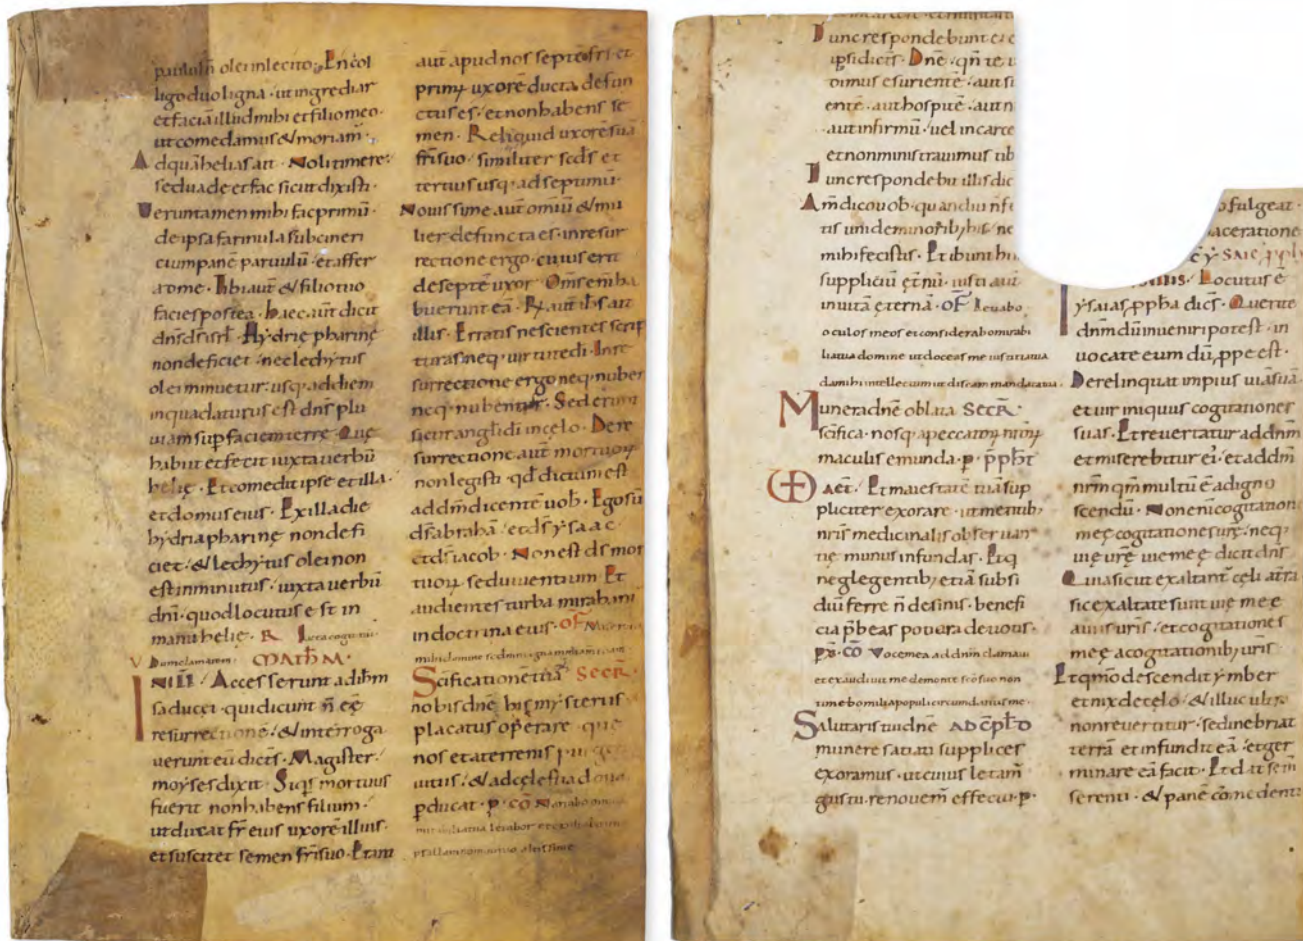 paululũ olei inlecito. En col
ligo duo ligna. ut ingrediar
et faciã illud mihi et filio meo.
ut comedamus & moriam̃.
Ad quã helias ait. Noli timere:
sed uade et fac sicut dixisti.
Ueruntamen mihi fac primũ.
de ipsa farinula subcineri
cium panẽ paruulũ. et affer
ad me. Tibi aut̃ & filio tuo
facies postea. Haec aut̃ dicit
dñs ds̃ isrl̃. Hydrię pharinę
non deficiet. nec lechytus
olei minuetur. usq. ad diem
in qua daturus est dñs plu
uiam sup faciem terrę. Quę
habiit et fecit iuxta uerbũ
helię. Et comedit ipse et illa.
et domus eius. Ex illa die
hydria pharinę non defi
ciet. & lechytus olei non
est inminutus. iuxta uerbũ
dñi. quod locutus est in
manu helie. R
Dum clamarem. MATH̃M.
IN ILL. Accesserunt ad ihm̃
saducei. qui dicunt ñ eẽ
resurrectionẽ. & interroga
uerunt eũ dicẽts. Magister.
moyses dixit. Siqs mortuus
fuerit non habens filium.
ut ducat fr̃ eius uxorẽ illius.
et suscitet semen fr̃i suo. Erant
aut̃ apud nos septẽ fr̃s. et
prim uxorẽ ducta. defun
ctus es. et non habens se
men. Reliquid uxorẽ suã
fr̃i suo. similiter scds̃ et
tertius usq. ad septimũ.
Nouissime aut̃ omiũ & mu
lier defuncta es. in resur
rectione ergo. cuius erit
de septẽ uxor. Om̃s em̃ ha
buerunt eã. R̃. aut̃ ihs̃ ait
illis. Erratis nescientes scrip
turas neq. uirtutẽ di. In re
surrectione ergo neq. nuben
neq. nubentur. Sed erunt
sicut angli di in celo. De re
surrectione aut̃ mortuoꝝ
non legistis. qd̃ dictum est
a dño dicente uob. Ego sũ
ds̃ abrahã. et ds̃ ysaac
et ds̃ iacob. Non est ds̃ mor
tuoꝝ. sed uiuentium. Et
audientes turba mirabant
in doctrina eius. OF̃
Scificationẽ tuã SECR̃.
nobis dnẽ his mysteriis
placatus operare. que
nos et a terrenis purget
uitiis. & ad cęlestia dona
pducat. p. CO
mirabilia tua letabor et exultabo
psallam nomini tuo altissime
Tunc respondebunt ei e
ipsi dicẽts. Dnẽ. qñ te u
dimus esurientẽ. aut si
entẽ. aut hospitẽ. aut n
aut infirmũ. uel in carce
et non ministrauimus tib
Tunc respondebit illis dic
Am̃ dico uob. quandiu ñ fe
tis uni de minorib; his. ne
mihi fecistis. Et ibunt hi
suppliciũ ẽtnũ. iusti aut̃
in uitã ẽternã. OF̃ Leuabo
oculos meos et considerabo mirabi
lia tua domine ut doceas me iustitia tua
da mihi intellectum ut discam mandata tua.
Munera dnẽ oblata SECR̃
scĩfica. nosq. a peccatoꝝ nrõꝝ
maculis emunda. p. p̃ph̃t
UD AET̃. Et maiestatẽ tuã sup
pliciter exorare. ut mentib;
nrĩs medicinalis obseruan
tię munus infundas. Et q
neglegentib; etiã subsi
diũ ferre ñ desinis. benefi
cia p̃beas potiora deuotis.
p̃x̃. CO Voce mea ad dñm clamaui
et exaudiuit me de monte scõ suo non
timebo milia populi circumdantis me.
Salutaris tui dnẽ AD CÕPL̃D
munere satiati supplices
exoramus. ut cuius letam̃
gustu. renouem̃ effectu. p.
o fulgeat.
aceratione
Locutus ẽ
ysaias ppha dic̃s. Querite
dñm dũ inueniri potest. in
uocate eum dũ ppe est.
Derelinquat impius uiã suã.
et uir iniquus cogitationes
suas. Et reuertatur ad dñm
et miserebitur ei. et ad dm̃
nrm̃ qm̃ multũ ẽ ad igno
scendũ. Non eni cogitation
meę cogitationes urę̃. neq.
uię urę̃ uie meę dicit dñs
Quia sicut exaltant̃ celi a tra
sic exaltate sunt uię meę
a uiis uris̃. et cogitationes
meę a cogitationib; uris̃
Et qm̃õ descendit ymber
et nix de cẽlo. & illuc ultra
non reuertitur. sed inebriat
terrã et infundit eã. et ger
minare eã facit. Et dat sem̃
serenti. & panẽ comedenti